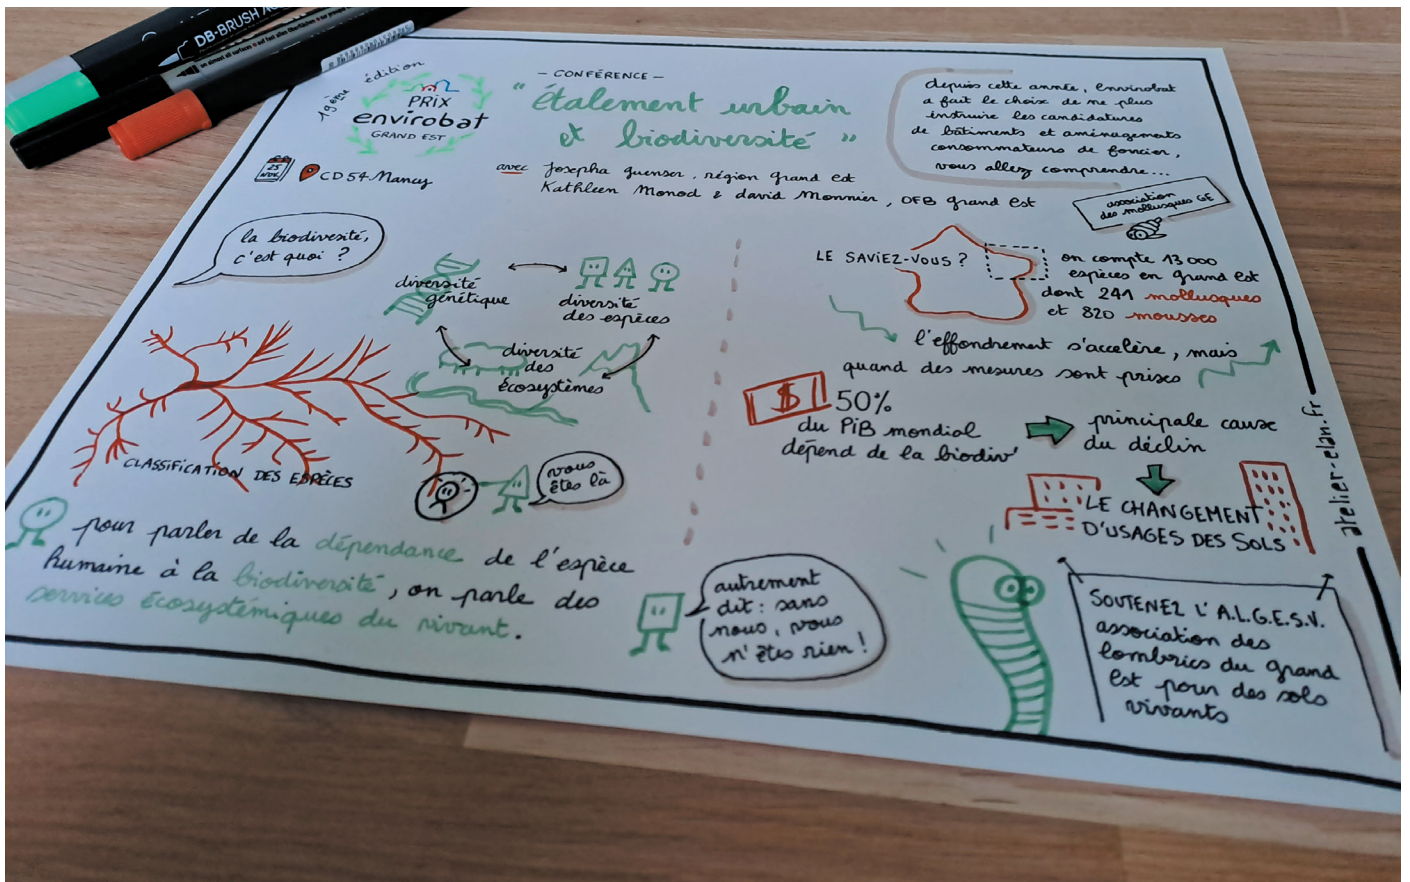 DB-BRUSH
19ème édition
PRIX
envirobat
GRAND EST
25
NOV.
CD54 Nancy
- CONFÉRENCE -
" étalement urbain
et biodiversité "
avec Josepha guenser, région grand est
Kathleen Monod & david Monnier, OFB grand est
depuis cette année, envirobat
a fait le choix de ne plus
instruire les candidatures
de bâtiments et aménagements
consommateurs de foncier,
vous allez comprendre...
association
des mollusques GE
la biodiversité,
c'est quoi ?
diversité
génétique
diversité
des espèces
diversité
des
écosystèmes
CLASSIFICATION DES ESPÈCES
vous
êtes là
pour parler de la dépendance de l'espèce
humaine à la biodiversité, on parle des
services écosystémiques du vivant.
LE SAVIEZ-VOUS ?
on compte 13 000
espèces en grand est
dont 241 mollusques
et 820 mousses
l'effondrement s'accelère, mais
quand des mesures sont prises
$
50%
du PiB mondial
dépend de la biodiv'
principale cause
du déclin
LE CHANGEMENT
D'USAGES DES SOLS
autrement
dit : sans
nous, vous
n'êtes rien !
SOUTENEZ L'A.L.G.E.S.V.
association des
lombrics du grand
Est pour des sols
vivants
atelier-elan.fr